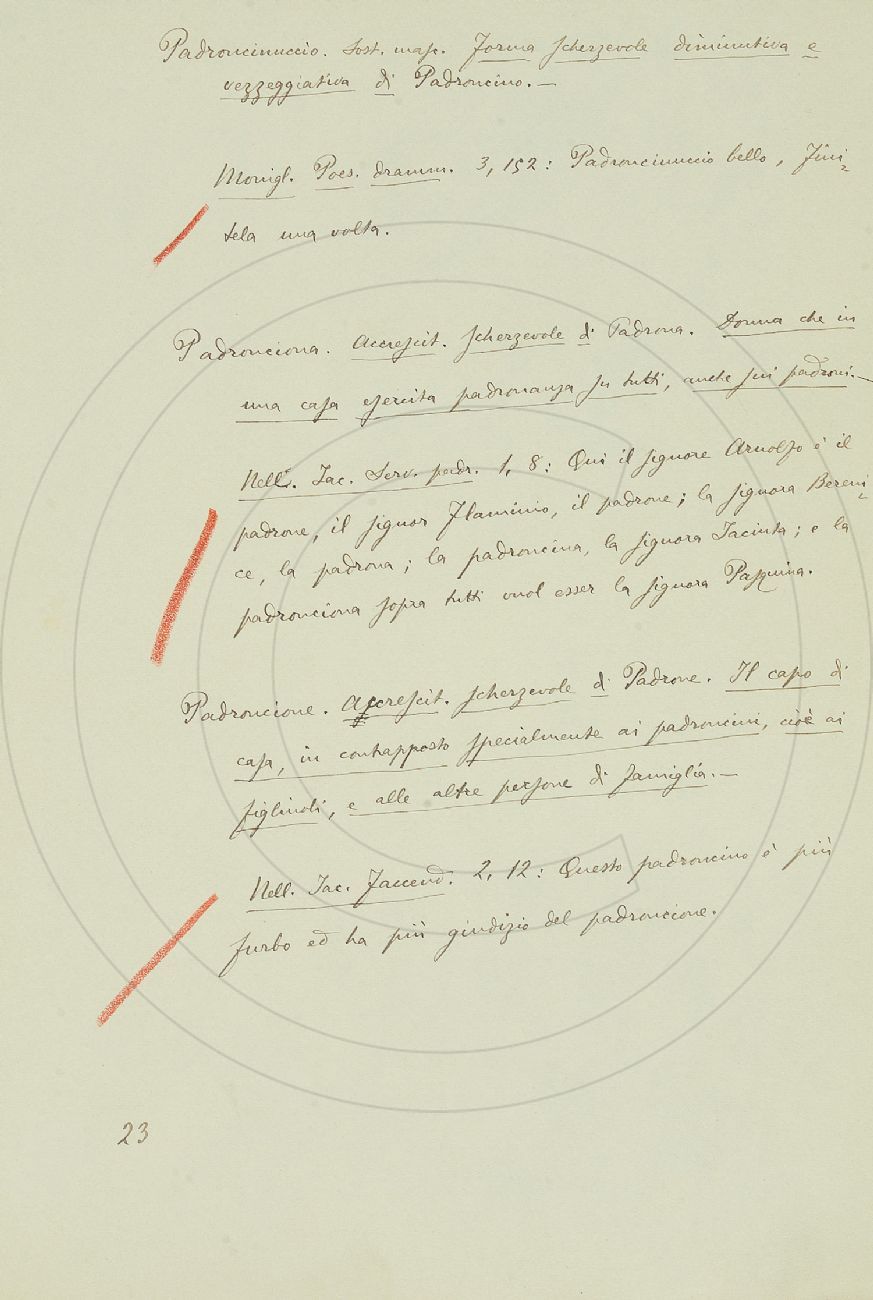 Padroncinuccio. Sost. masc. Forma scherzevole diminutiva e
vezzeggiativa di Padroncino. —
Monigl. Poes. dramm. 3, 152: Padroncinuccio bello, Fini=
tela una volta.
Padronciona. Accrescit. scherzevole di Padrona. Donna che in
una casa esercita padronanza su tutti, anche sui padroni. —
Nell. Iac. Serv. padr. 1, 8: Qui il signore Arnolfo è il
padrone, il signor Flaminio, il padrone; la signora Bereni=
ce, la padrona; la padroncina, la signora Iacinta; e la
padronciona sopra tutti vuol esser la signora Pasquina.
Padroncione. Accrescit. scherzevole di Padrone. Il capo di
casa, in contrapposto specialmente ai padroncini, cioè ai
figliuoli, e alle altre persone di famiglia. —
Nell. Iac. Faccend. 2, 12: Questo padroncino è più
furbo ed ha più giudizio del padroncione.
23